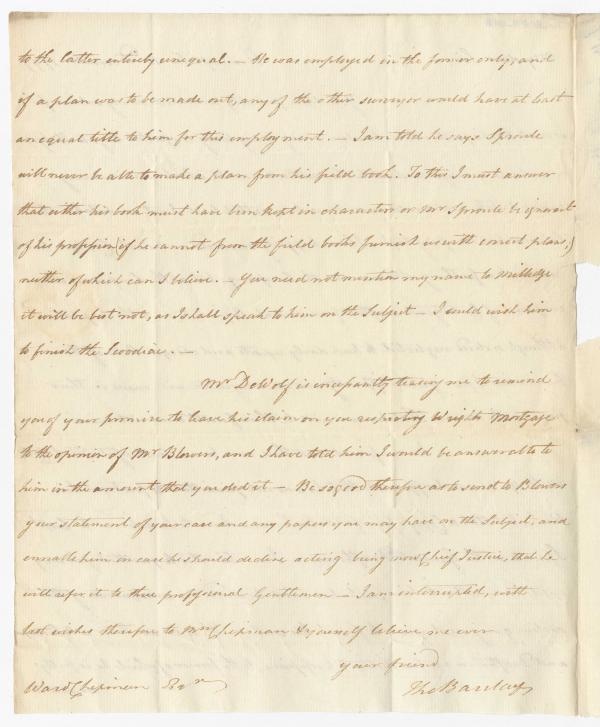 to the latter entirely unequal. — He was employed in the former only, and
if a plan was to be made out, any of the other surveyor would have at least
an equal title to him for this employment. — I am told he says Sproule
will never be able to made a plan from his field book. To this I must answer
that either his book must have been kept in characters or Mr Sproule be ignorant
of his profession (if he cannot from the field books furnish us with correct plans,)
neither of which can I believe. — You need not mention my name to Milledge
it will be best not, as I shall speak to him on the Subject — I could wish him
to finish the Scoodiac. —
Mr DeWolf is incessantly teasing me to remind
you of your promise to leave his claim on you respecting Wrights Mortgage
to the opinion of Mr Blowers, and I have told him I would be answerable to
him in the amount that you did it — Be so good therefore as to send to Blowers
your statement of your case and any papers you may have on the Subject, and
ennable him in case he should decline acting being now Chief Justice, that he
will refer it to three professional Gentlemen — I am interrupted, with
best wishes therefore to Mrs Chipman & yourself believe me ever
your friend
Ward Chipman Esqr
Tho Barclay